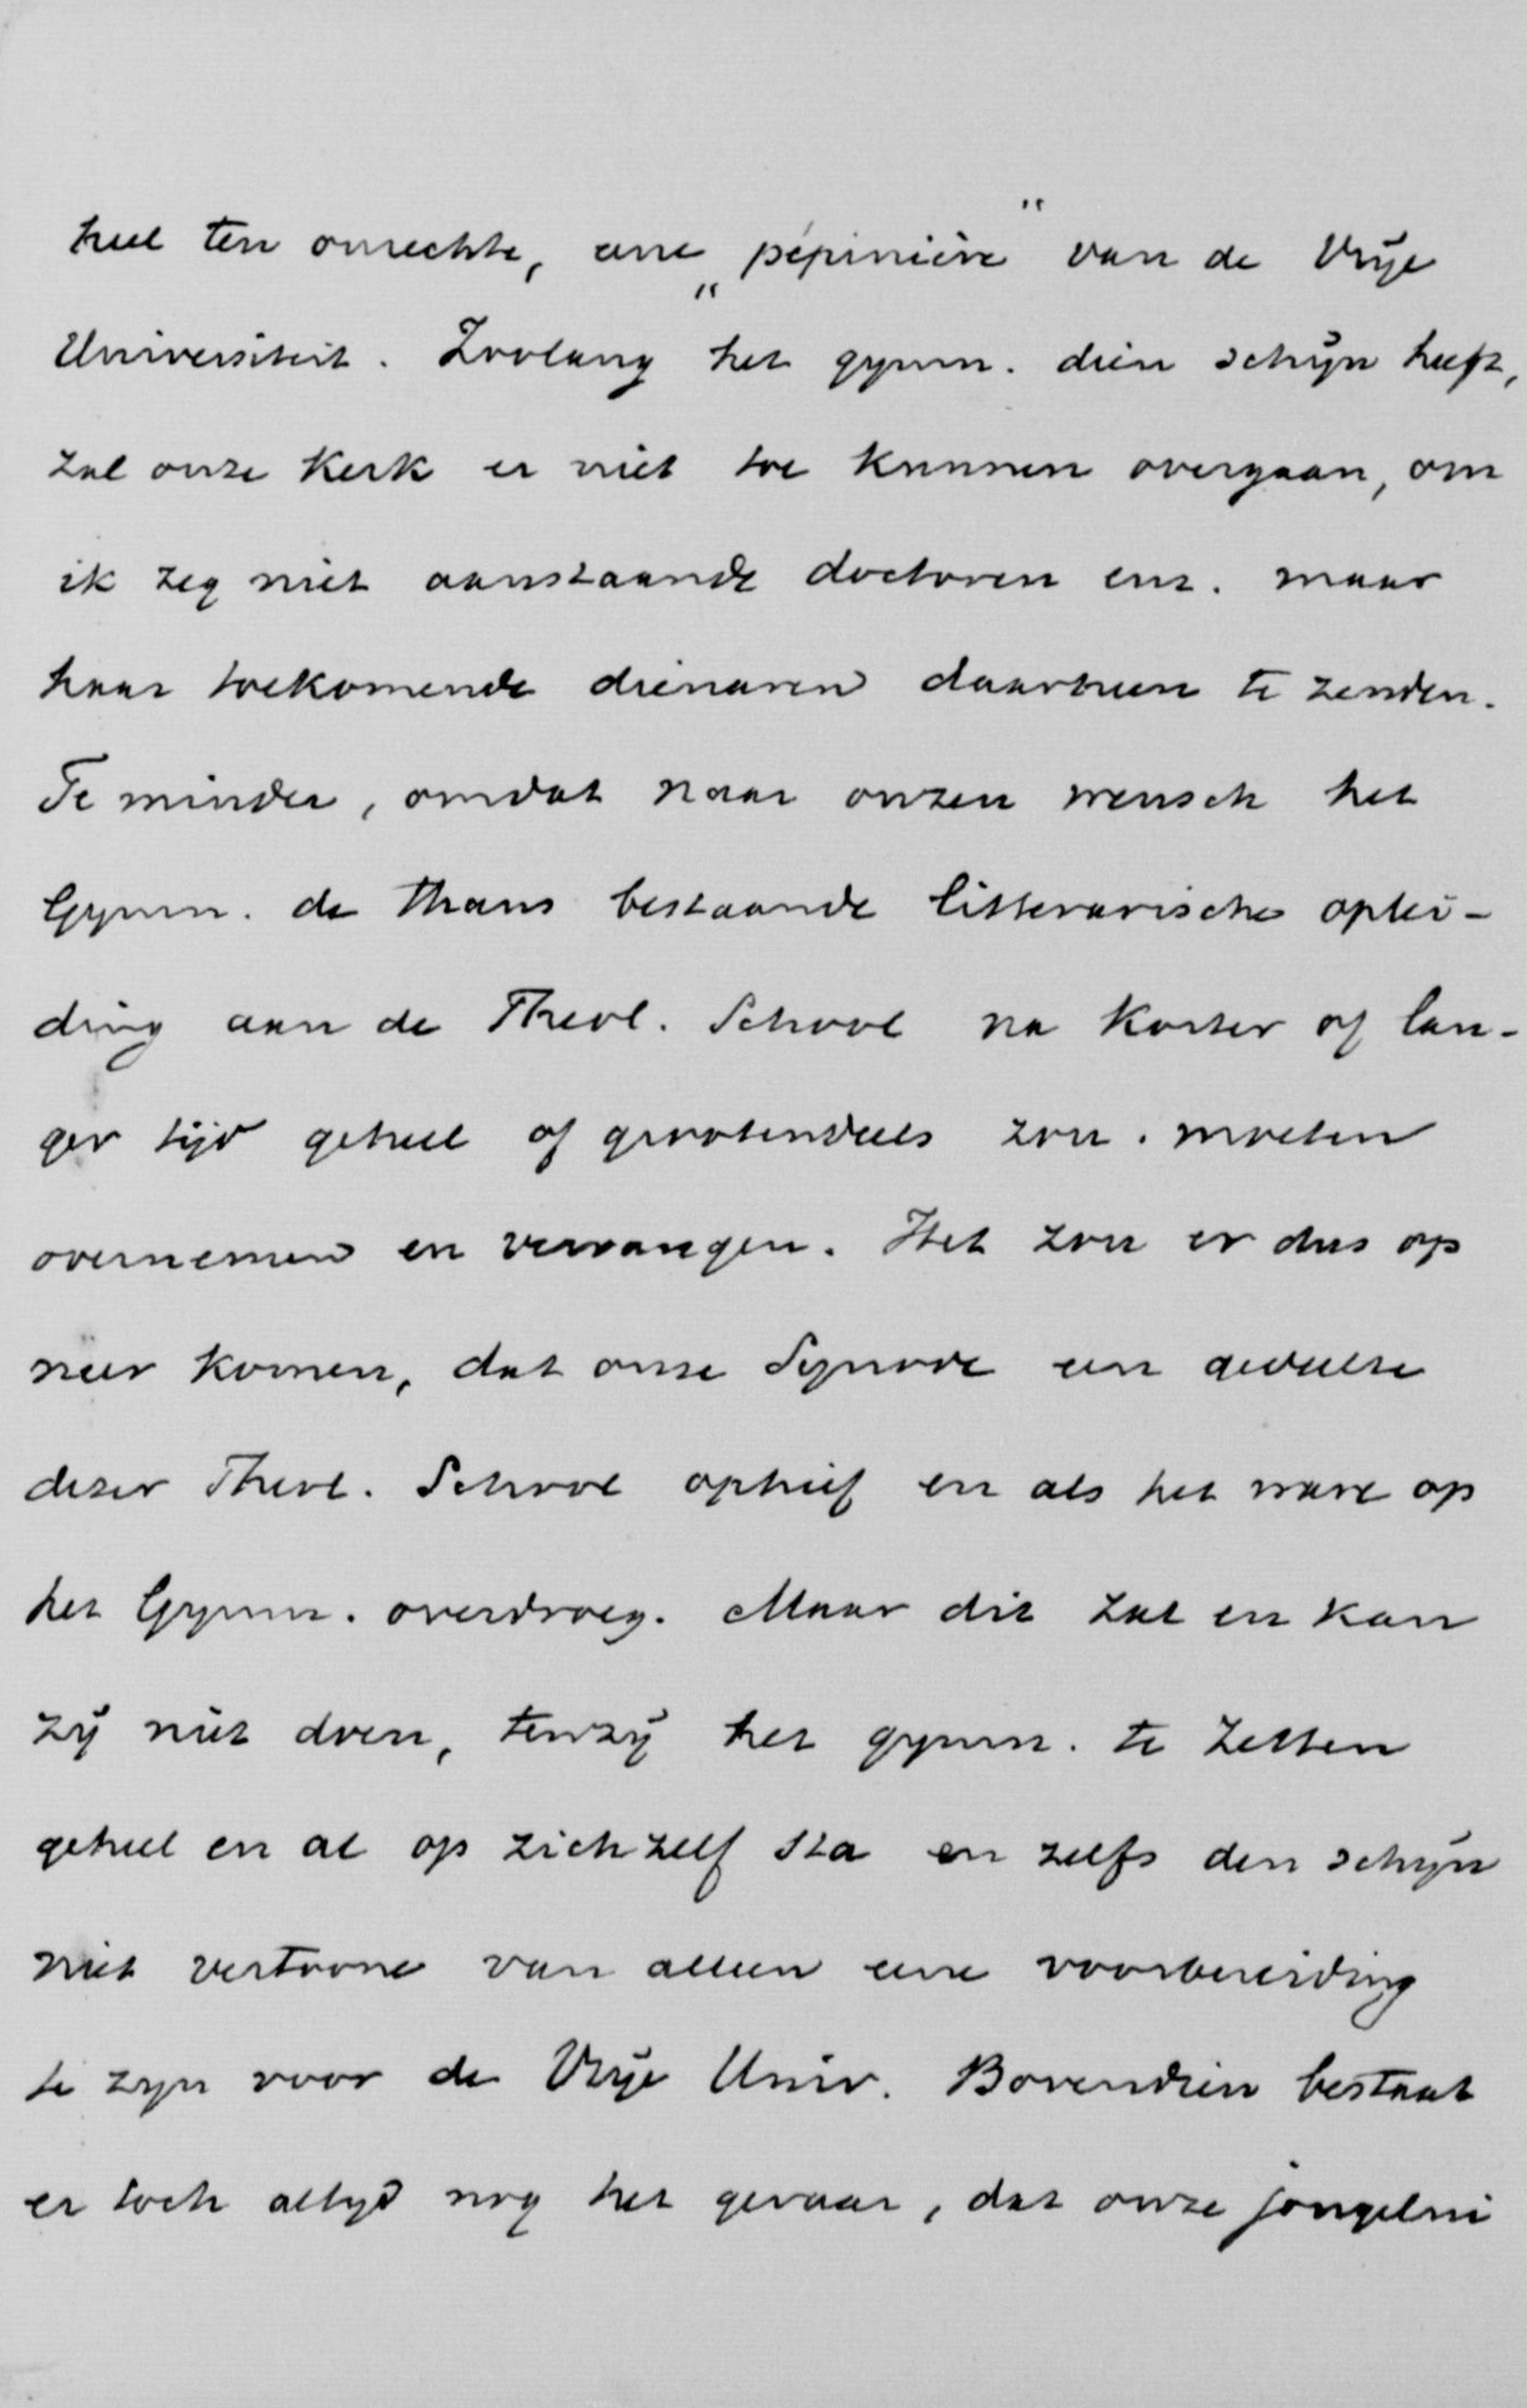 heel ten onrechte, eene „pépinière” van de Vrije
Universiteit. Zoolang het gymn. dien schijn heeft,
zal onze Kerk er niet toe kunnen overgaan, om
ik zeg niet aanstaande doctoren enz. maar
haar toekomende dienaren daarheen te zenden.
Te minder, omdat naar onzen wensch het
Gymn. de thans bestaande litterarische oplei-
ding aan de Theol. School na korter of lan-
ger tijd geheel of grootendeels zou. moeten
overnemen en vervangen. Het zou er dus op
neer komen, dat onze Synode een gedeelte
dezer Theol. School ophief en als het ware op
het Gymn. overdroeg. Maar dit zal en kan
zij niet doen, tenzij het gymn. te Zetten
geheel en al op zichzelf sta en zelfs den schijn
niet vertoone van alleen eene voorbereiding
te zijn voor de Vrije Univ. Bovendien bestaat
er toch altijd nog het gevaar, dat onze jongelui